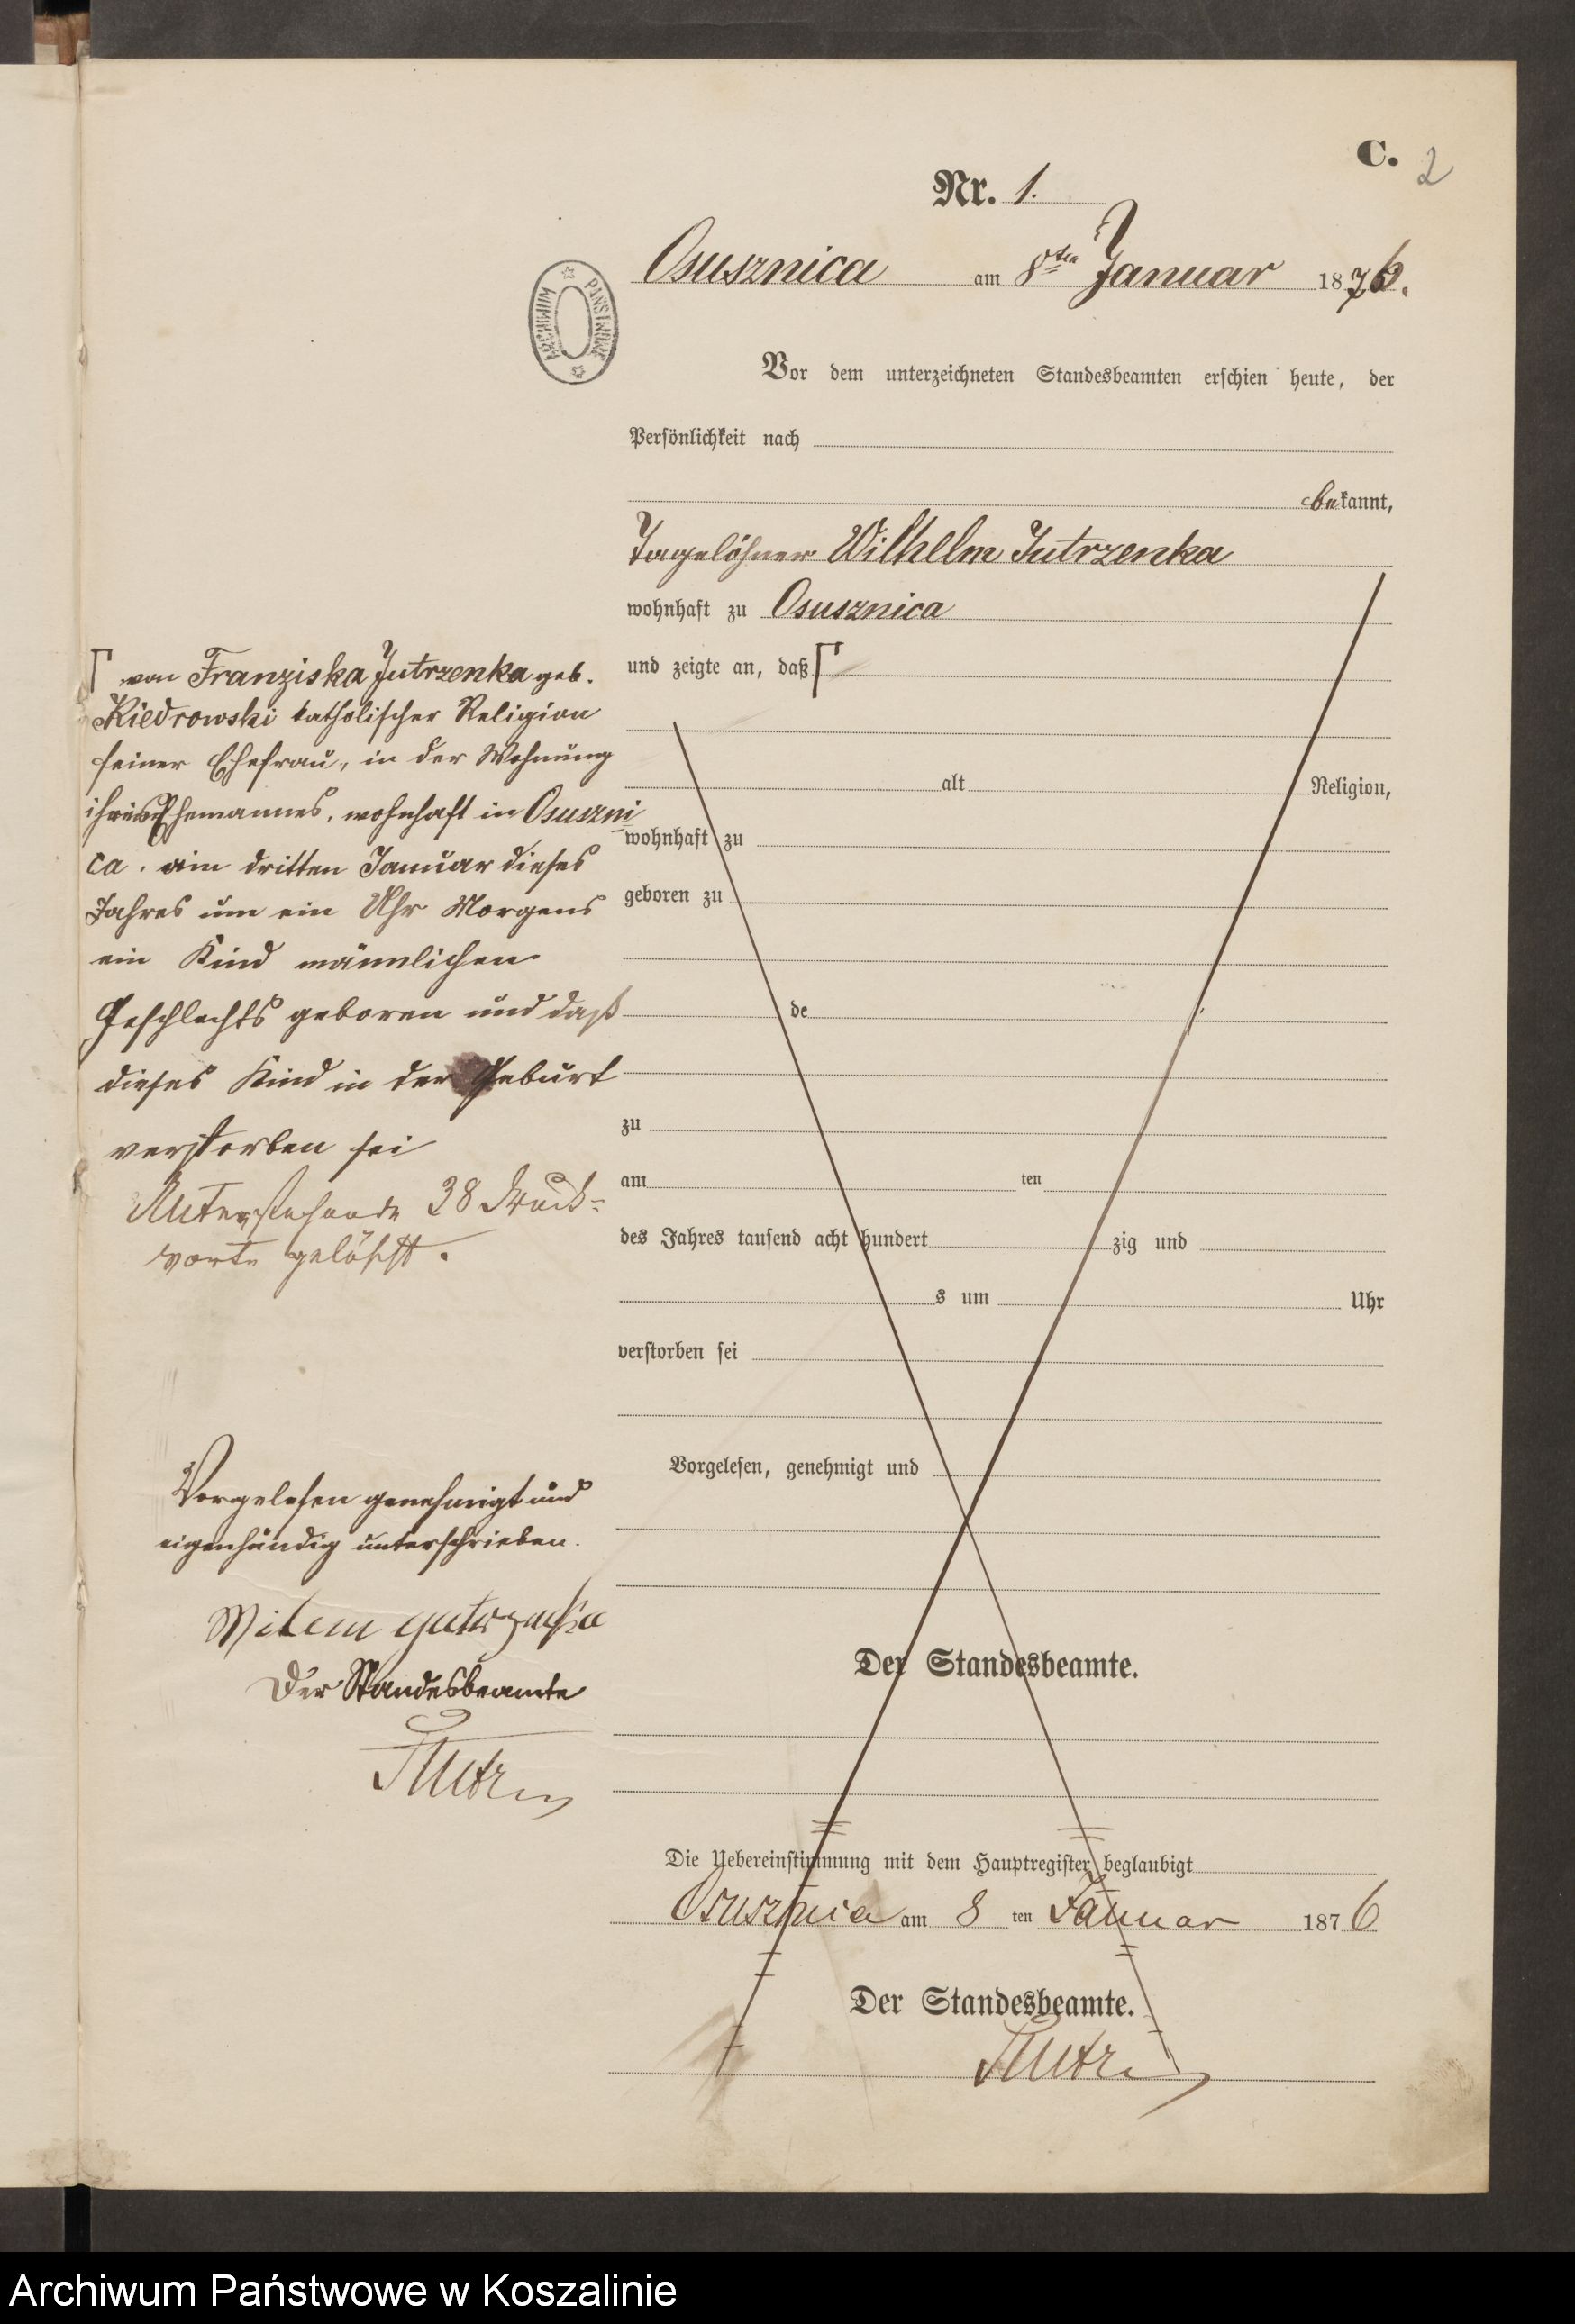 C. 2
Nr. 1.
Osusznica am 8ten Januar 1876.
ARCHIWUM PAŃSTWOWE
Vor dem unterzeichneten Standesbeamten erschien heute, der
Persönlichkeit nach
bekannt,
Tagelöhner Wilhelm Jutrzenka
wohnhaft zu Osusznica
und zeigte an, daß
alt Religion,
wohnhaft zu
geboren zu
de
zu
am ten
des Jahres tausend acht hundert zig und
s um Uhr
verstorben sei
Vorgelesen, genehmigt und
Der Standesbeamte.
Die Uebereinstimmung mit dem Hauptregister beglaubigt
Osusznica am 8 ten Januar 1876
Der Standesbeamte.
von Franziska Jutrzenka geb.
Kiedrowski katholischer Religion
seiner Ehefrau, in der Wohnung
ihres Ehemannes, wohnhaft in Osuszni
ca. am dritten Januar dieses
Jahres um ein Uhr Morgens
ein Kind männlichen
Geschlechts geboren und daß
dieses Kind in der Geburt
verstorben sei
38 Druck=
worte gelöscht.
Vorgelesen genehmigt und
eigenhändig unterschrieben.
Wilem Jutrzenka
Der Standesbeamte
Archiwum Państwowe w Koszalinie